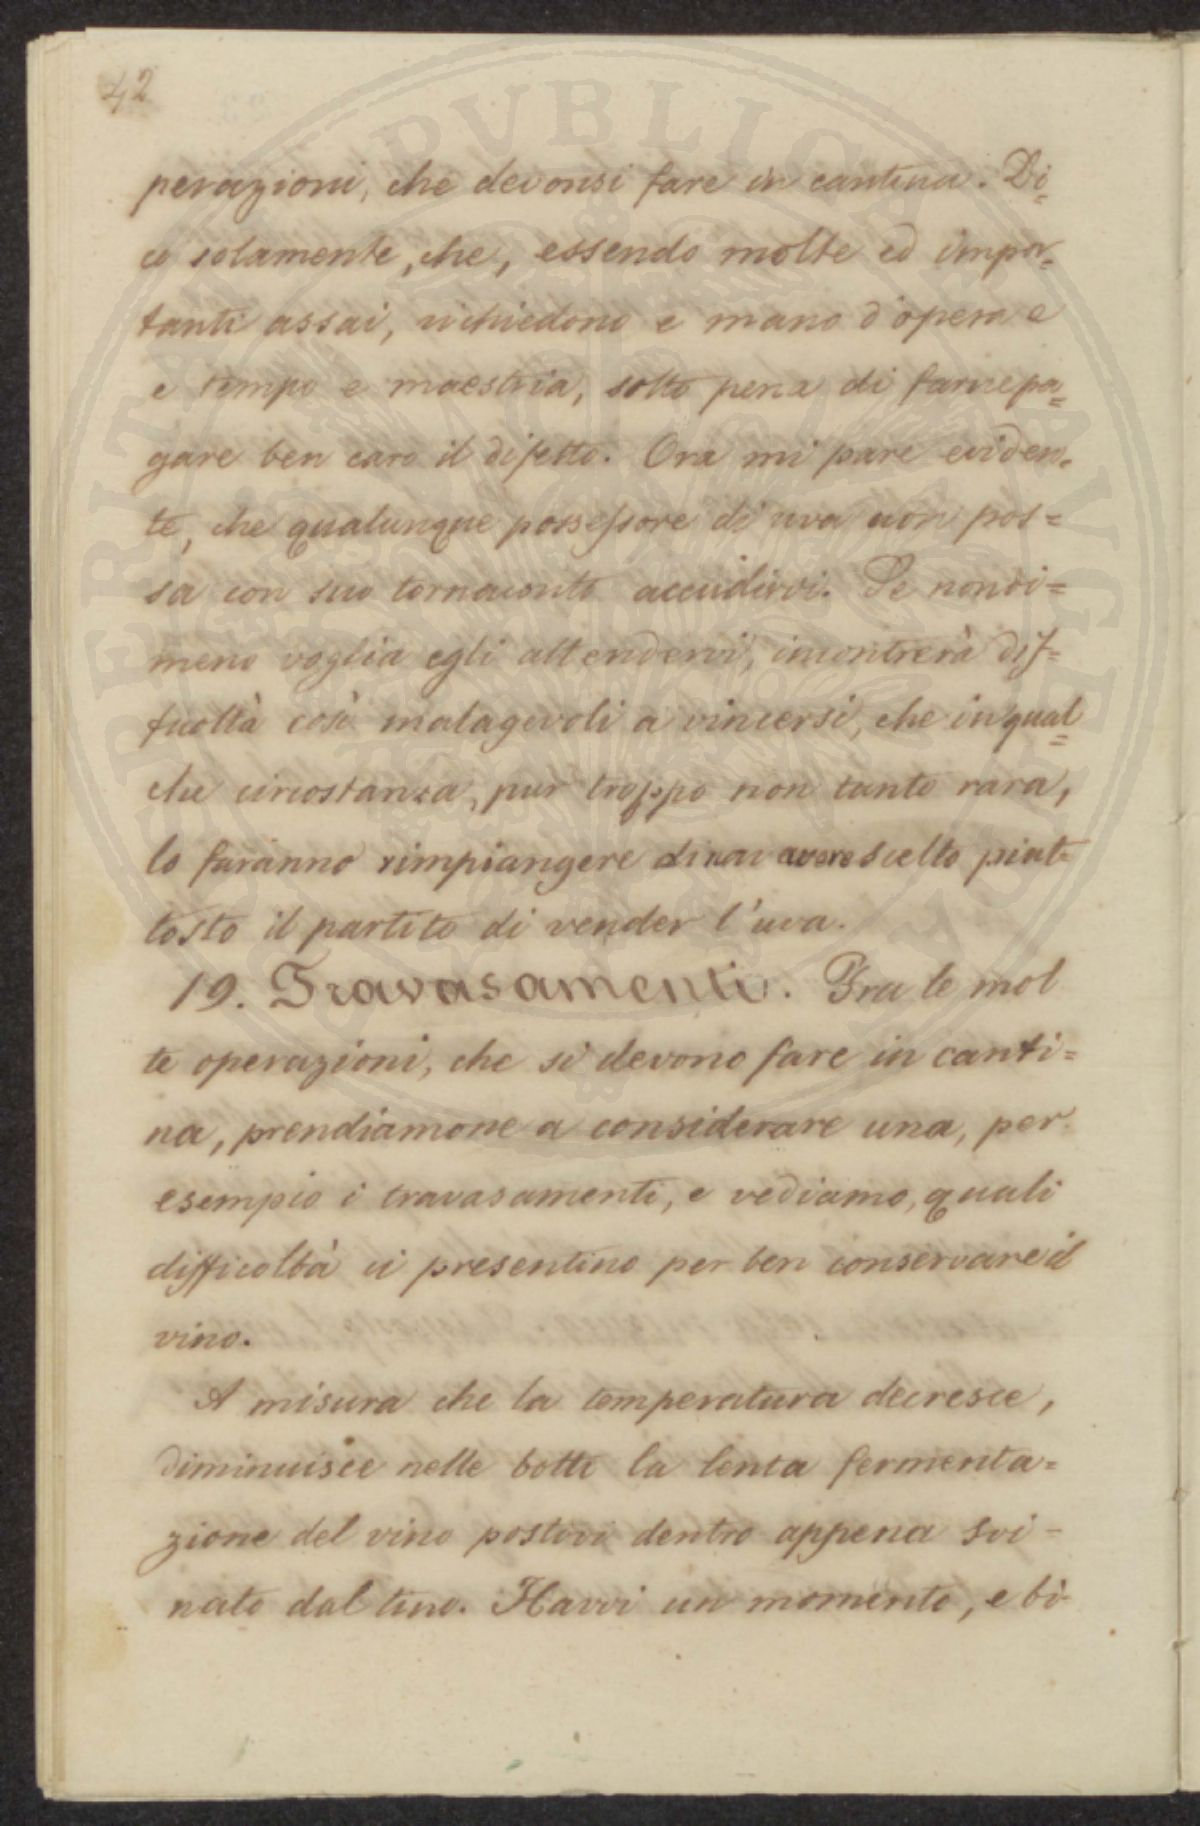 42
perazioni, che devonsi fare in cantina. Di=
co solamente, che, essendo molte ed impor=
tanti assai, richiedono e mano d'opera e
e tempo e maestria, sotto pena di farne pa=
gare ben caro il difetto. Ora mi pare eviden=
te, che qualunque possessore di uva non pos=
sa con suo tornaconto accudirvi. Se nondi=
meno voglia egli attendervi, incontrerà dif=
ficoltà così malagevoli a vincersi, che in qual=
che circostanza, pur troppo non tanto rara,
lo faranno rimpiangere di non avere scelto piut=
tosto il partito di vender l'uva.
19. Travasamenti. Fra le mol
te operazioni, che si devono fare in canti=
na, prendiamone a considerare una, per
esempio i travasamenti, e vediamo, quali
difficoltà ci presentino per ben conservare il
vino.
A misura che la temperatura decresce,
diminuisce nelle botti la lenta fermenta=
zione del vino postovi dentro appena svi=
nato dal tino. Havvi un momento, e bi-
PERITAT PVBLICAE AVGENDAE